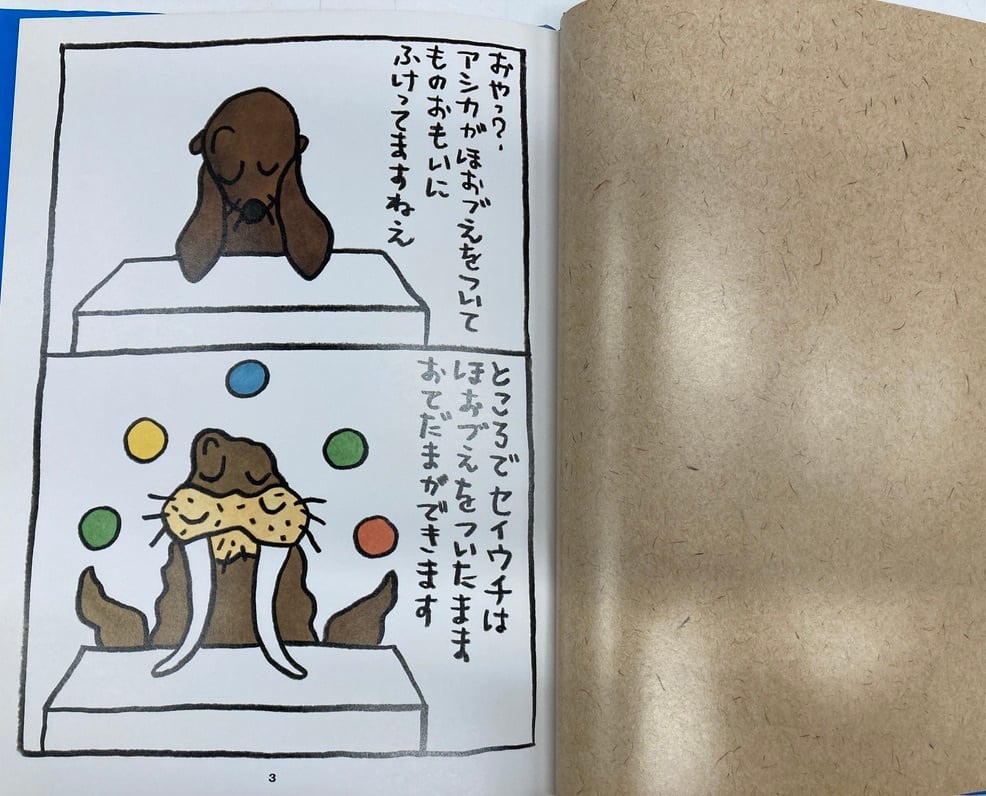 おやっ?
アシカがほおづえをついて
ものおもいに
ふけってますねえ
ところでセイウチは
ほおづえをついたまま
おてだまができます
3